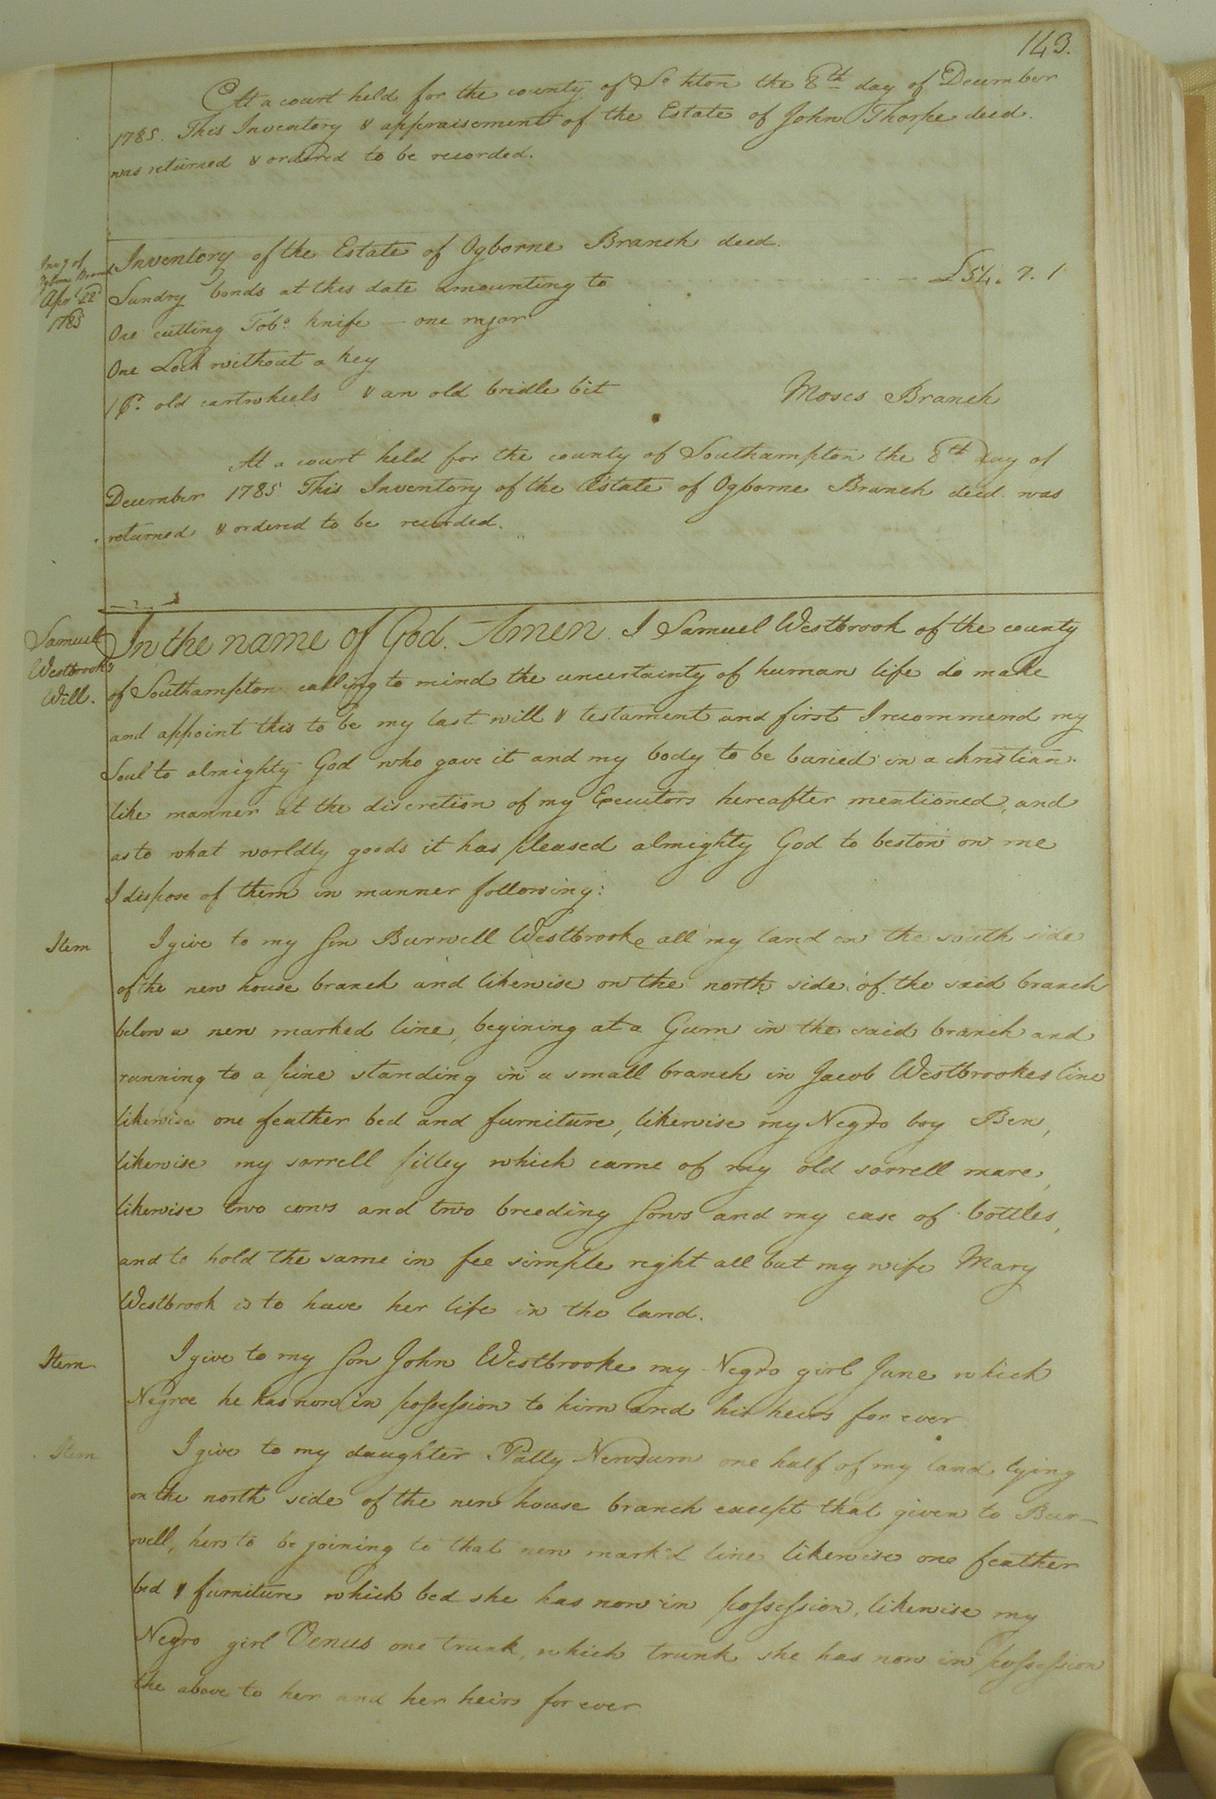 143.
At a court held for the county of So hton the 8th day of December
1785. This Inventory & appraisement of the Estate of John Thorpe decd.
was returned & ordered to be recorded.
Inv'y of
Ogborne Branch
Apr. 22d
1785
Inventory of the Estate of Ogborne Branch decd.
Sundry bonds at this date amounting to £54. 7. 1
One cutting Tobo. knife — one razor
One Lock without a key
1 Pr. old cartwheels & an old bridle bit
Moses Branch
At a court held for the county of Southampton the 8th day of
December 1785 This Inventory of the Estate of Ogborne Branch decd. was
returned & ordered to be recorded.
Samuel
Westbrook
Will.
In the name of God. Amen. I Samuel Westbrook of the county
of Southampton calling to mind the uncertainty of human life do make
and appoint this to be my last will & testament and first I recommend my
Soul to almighty God who gave it and my body to be buried in a christian
like manner at the discretion of my Executors hereafter mentioned, and
as to what worldly goods it has pleased almighty God to bestow on me
I dispose of them in manner following:
Item I give to my son Burwell Westbrooke all my land on the south side
of the new house branch and likewise on the north side of the said branch
below a new marked line, begining at a Gum in the said branch and
running to a pine standing in a small branch in Jacob Westbrookes line
likewise one feather bed and furniture, likewise my Negro boy Ben,
likewise my sorrell filley which came of my old sorrell mare,
likewise two cows and two breeding sows and my case of bottles,
and to hold the same in fee simple right all but my wife Mary
Westbrook is to have her life in the land.
Item I give to my son John Westbrooke my Negro girl Jane which
Negroe he has now in possession to him and his heirs for ever
Item I give to my daughter Patty Newsum one half of my land lying
on the north side of the new house branch except that given to Bur-
well, hers to be joining to that new mark'd line likewise one feather
bed & furniture which bed she has now in possession, likewise my
Negro girl Venus one trunk, which trunk she has now in possession
the above to her and her heirs for ever